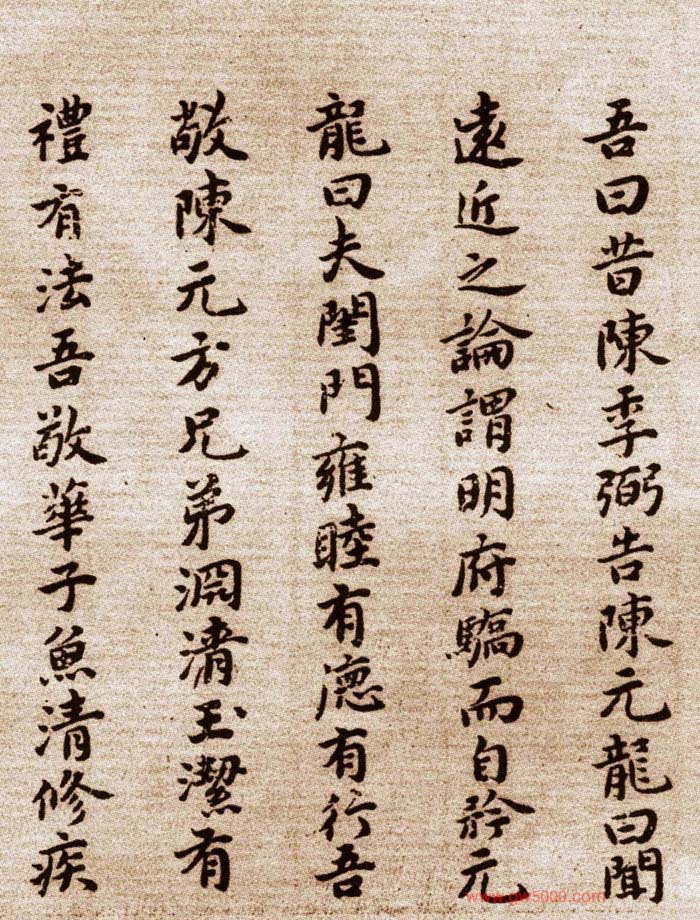 吾曰昔陳季弼告陳元龍曰聞
遠近之論謂明府驕而自矜元
龍曰夫閨門雍睦有德有行吾
敬陳元方兄弟淵清玉潔有
禮有法吾敬華子魚清修疾
www.gw5000.com